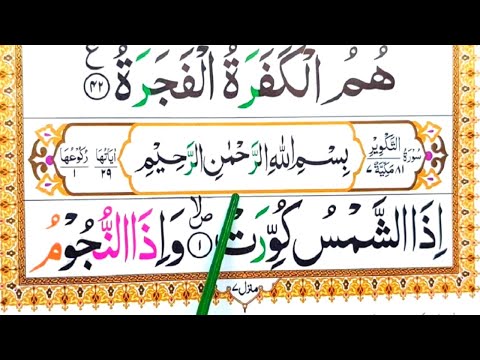 هُمُ الْكَفَرَةُ الْفَجَرَةُ ﴿۴۲﴾ ع
سُوْرَةُ التَّكْوِيْرِ ۸۱ مَكِّيَّةٌ ۷
بِسْمِ اللّٰهِ الرَّحْمٰنِ الرَّحِيْمِ
اٰيَاتُهَا ۲۹ رُكُوْعُهَا ۱
اِذَا الشَّمْسُ كُوِّرَتْ ﴿۱﴾ۙ وَاِذَا النُّجُوْمُ
منزل ۷